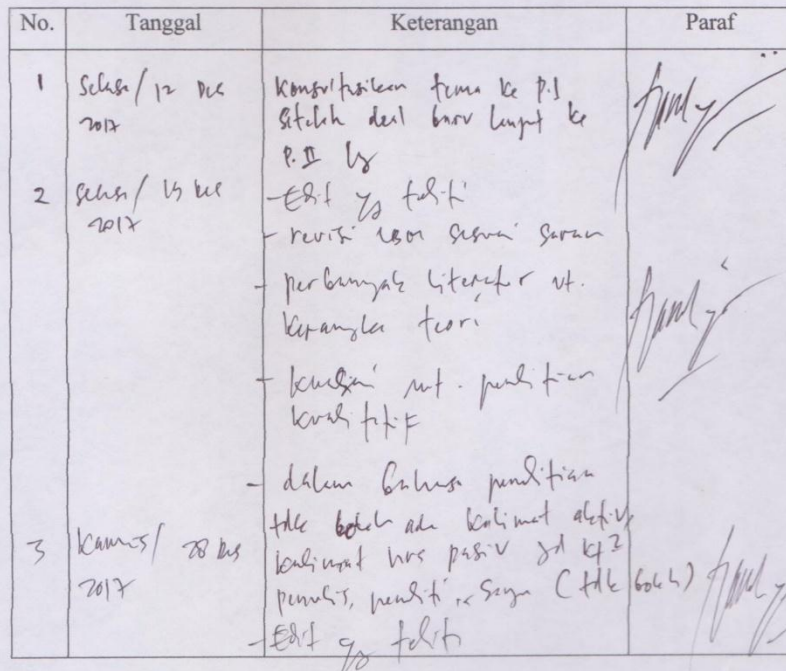 No. Tanggal Keterangan Paraf
1 Selasa/ 12 Des 2017
Konsultasikan tema ke P.I
setelah deal baru lanjut ke
P.II
2 Selasa/ 19 Des 2017
- Edit yg teliti
- revisi sesuai saran
- perbanyak literatur ut.
kerangka teori
- penelitian
kualitatif
- dalam bahasa penelitian
tdk boleh ada kalimat aktif,
kalimat hrs pasiv jd kt2
penulis, peneliti, saya (tdk boleh)
3 Kamis/ 28 Des 2017
- Edit yg teliti